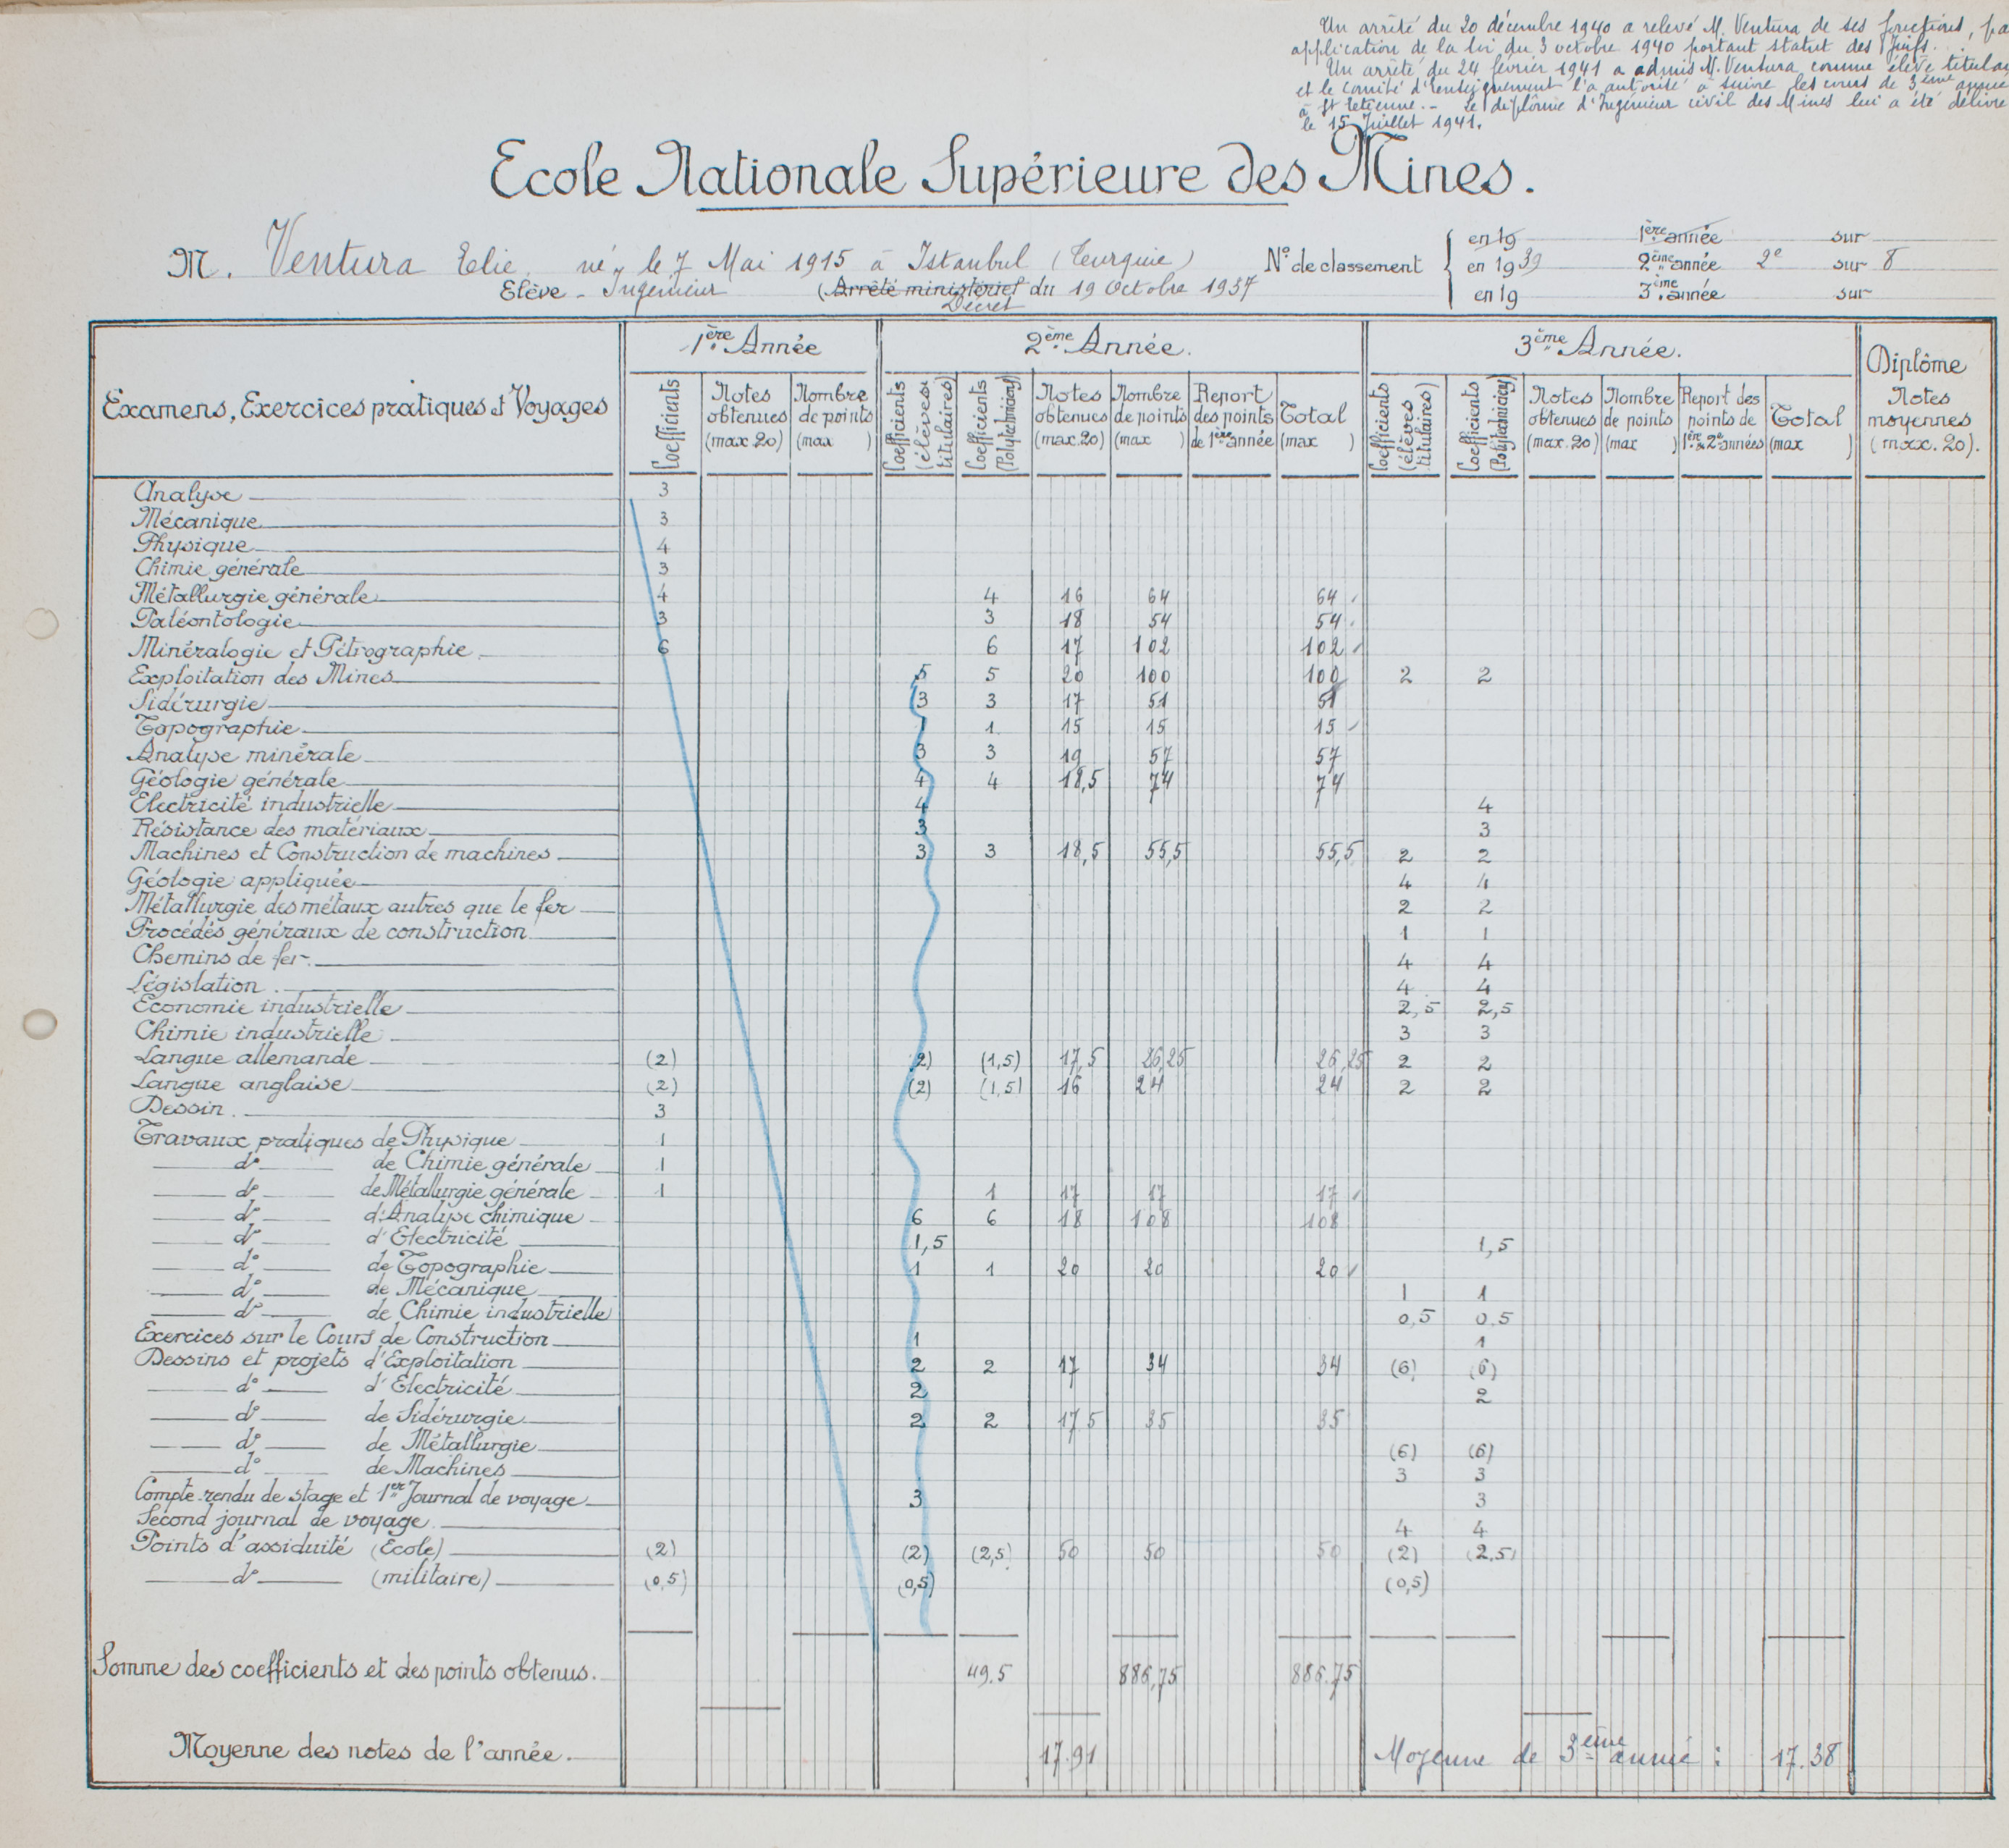 Un arrêté du 20 décembre 1940 a relevé M. Ventura de ses fonctions, pa
application de la loi du 3 octobre 1940 portant statut des Juifs.
Un arrêté du 24 février 1941 a admis M. Ventura comme élève titulai
et le comité d'enseignement l'a autorisé à suivre les cours de 3ème année
à St Etienne. - Le diplôme d'Ingénieur civil des Mines lui a été délivré
le 15 Juillet 1941.
Ecole Nationale Supérieure des Mines.
M. Ventura Elie, né le 7 Mai 1915 à Istanbul (Turquie)
Elève - Ingénieur (Arrêté ministériel du 19 Octobre 1937
Décret
N° de classement
en 19 1ère année sur
en 1939 2ème année 2e sur 8
en 19 3ème année sur
Examens, Exercices pratiques et Voyages 1ère Année 2ème Année. 3ème Année. Diplôme Notes moyennes (max. 20).
Coefficients Notes obtenues (max 20) Nombre de points (max ) Coefficients (élèves titulaires) Coefficients (Polytechniciens) Notes obtenues (max. 20) Nombre de points (max ) Report des points de 1ère année Total (max ) Coefficients (élèves titulaires) Coefficients (Polytechniciens) Notes obtenues (max. 20) Nombre de points (max ) Report des points de 1ère & 2e années Total (max )
Analyse 3
Mécanique 3
Physique 4
Chimie générale 3
Métallurgie générale 4 4 16 64 64
Paléontologie 3 3 18 54 54
Minéralogie et Pétrographie 6 6 17 102 102
Exploitation des Mines 5 5 20 100 100 2 2
Sidérurgie 3 3 17 51 51
Topographie 1 1 15 15 15
Analyse minérale 3 3 19 57 57
Géologie générale 4 4 18,5 74 74
Electricité industrielle 4 4
Résistance des matériaux 3 3
Machines et Construction de machines 3 3 18,5 55,5 55,5 2 2
Géologie appliquée 4 4
Métallurgie des métaux autres que le fer 2 2
Procédés généraux de construction 1 1
Chemins de fer 4 4
Législation 4 4
Economie industrielle 2,5 2,5
Chimie industrielle 3 3
Langue allemande (2) (2) (1,5) 17,5 26,25 26,25 2 2
Langue anglaise (2) (2) (1,5) 16 24 24 2 2
Dessin 3
Travaux pratiques de Physique 1
d° de Chimie générale 1
d° de Métallurgie générale 1 1 17 17 17
d° d'Analyse chimique 6 6 18 108 108
d° d'Electricité 1,5 1,5
d° de Topographie 1 1 20 20 20
d° de Mécanique 1 1
d° de Chimie industrielle 0,5 0.5
Exercices sur le Cours de Construction 1 1
Dessins et projets d'Exploitation 2 2 17 34 34 (6) (6)
d° d'Electricité 2 2
d° de Sidérurgie 2 2 17 5 35 35
d° de Métallurgie (6) (6)
d° de Machines 3 3
Compte-rendu de stage et 1er Journal de voyage 3 3
Second journal de voyage 4 4
Points d'assiduité (Ecole) (2) (2) (2,5) 50 50 50 (2) (2,5)
d° (militaire) (0,5) (0,5) (0,5)
Somme des coefficients et des points obtenus. 49.5 886,75 886.75
Moyenne des notes de l'année. 17.91 Moyenne de 3ème année : 17.38